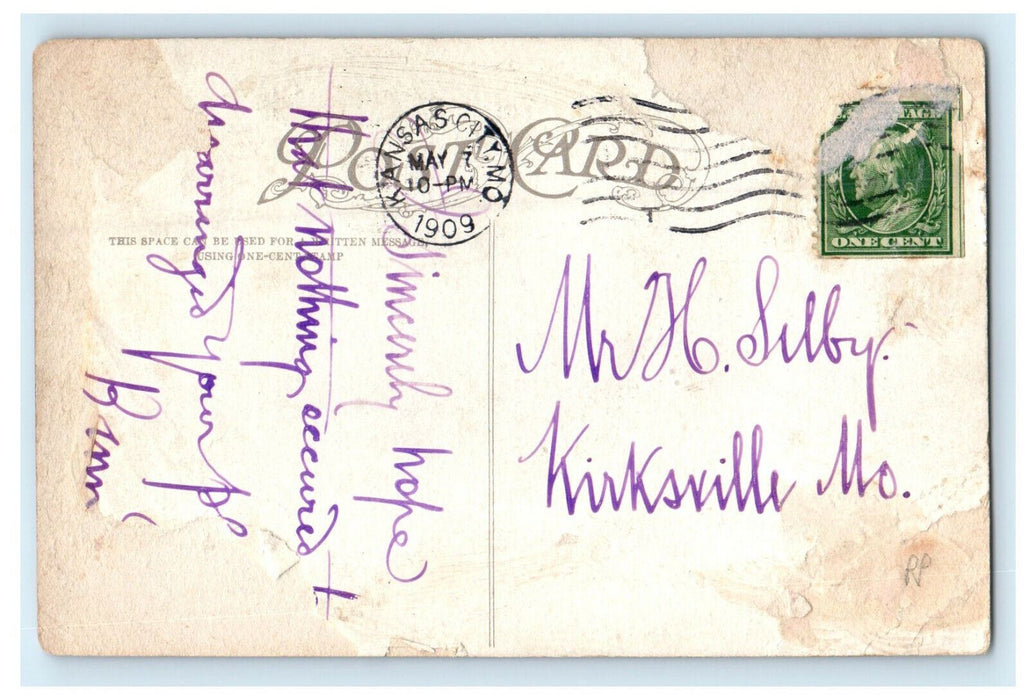 POST CARD
KANSAS CITY, MO
MAY 7
10-PM
1909
THIS SPACE CAN BE USED FOR A WRITTEN MESSAGE,
USING ONE-CENT STAMP
POSTAGE
ONE CENT
Sincerely hope
that nothing occured
your
Mr H. Selby.
Kirksville Mo.
RP